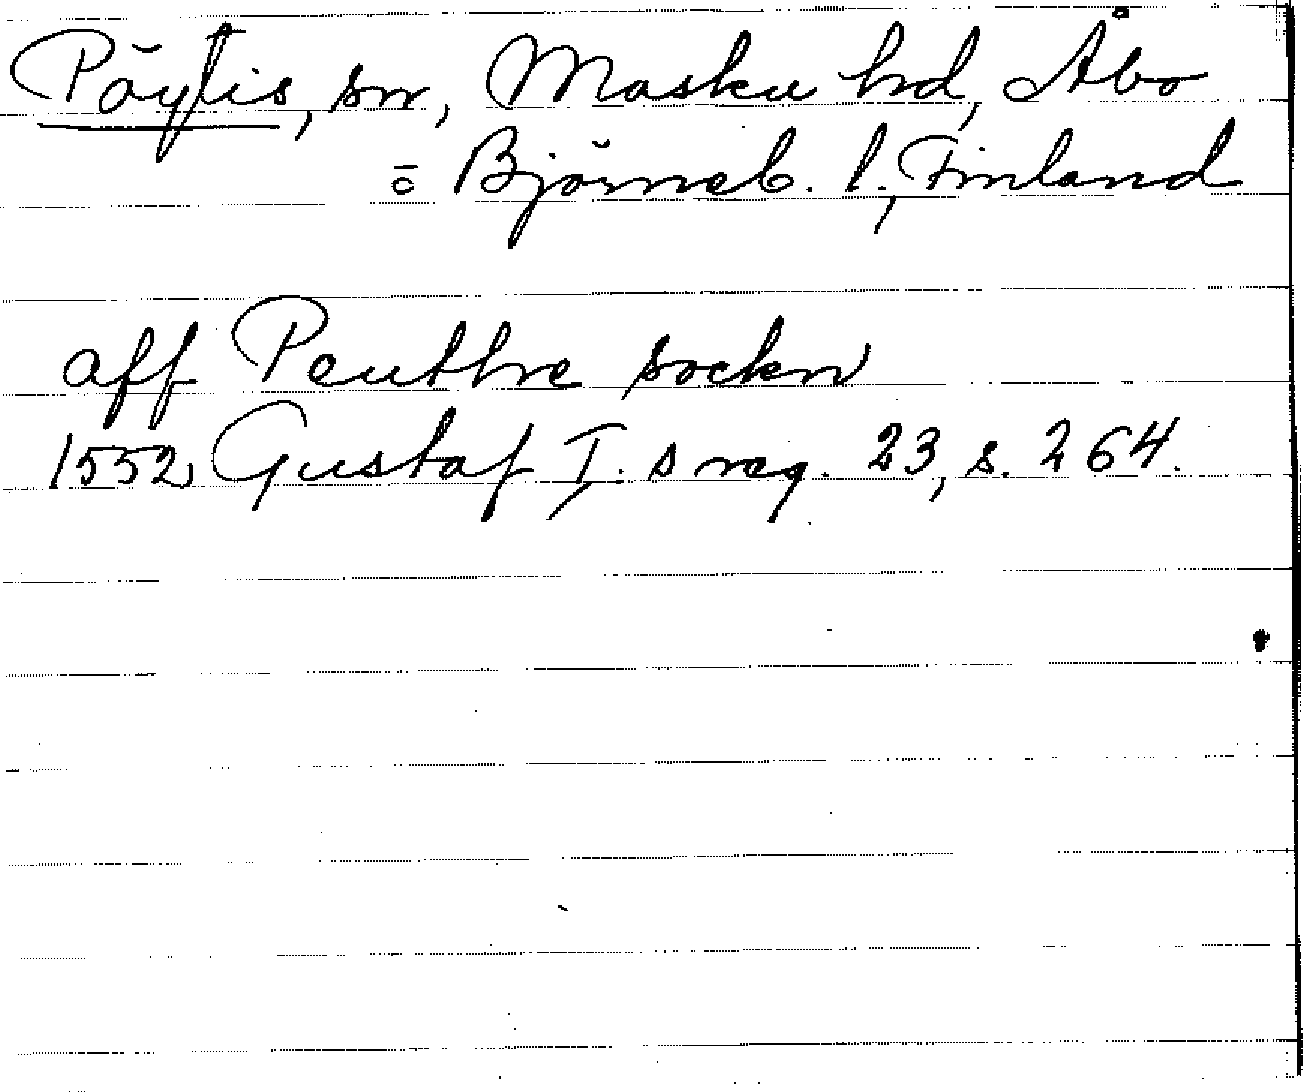 Pöytis, sn, Masku hd, Åbo
o Björneb. l., Finland
aff Peuthre sockn
1552 Gustaf I. s reg. 23, s. 264.